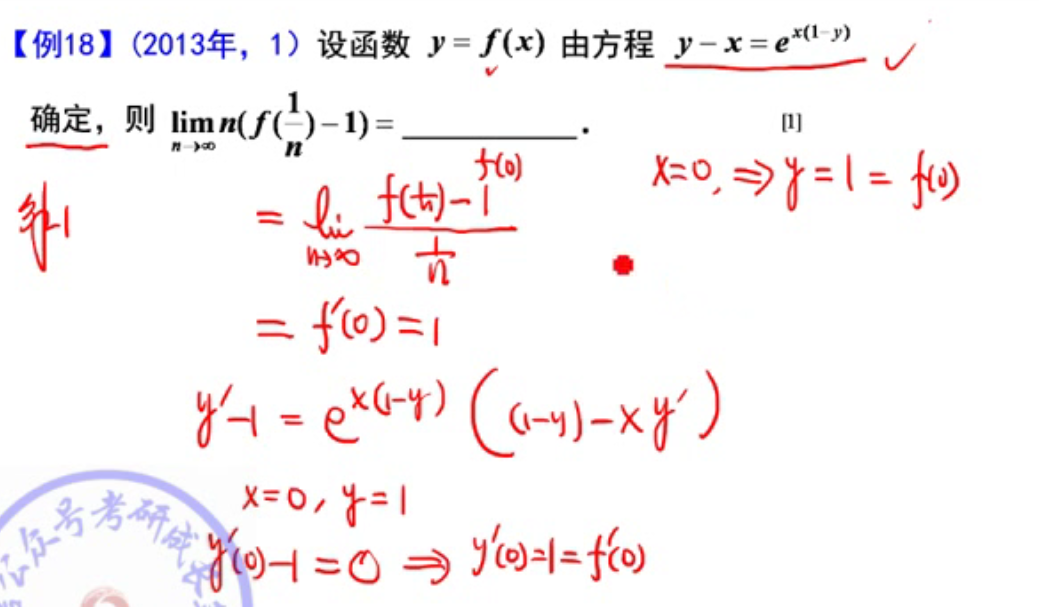 【例18】(2013年, 1) 设函数 y = f(x) 由方程 y − x = e^{x(1−y)} ✓
确定, 则 lim_{n→∞} n(f(1/n) − 1) = ________. [1]
x=0, ⇒ y = 1 = f(0)
= lim_{n→∞} (f(1/n) − 1)/(1/n) f(0)
= f′(0) = 1
y′−1 = e^{x(1−y)} ((1−y) − xy′)
x=0, y=1
y′(0)−1 = 0 ⇒ y′(0)=1=f′(0)
公众号考研成